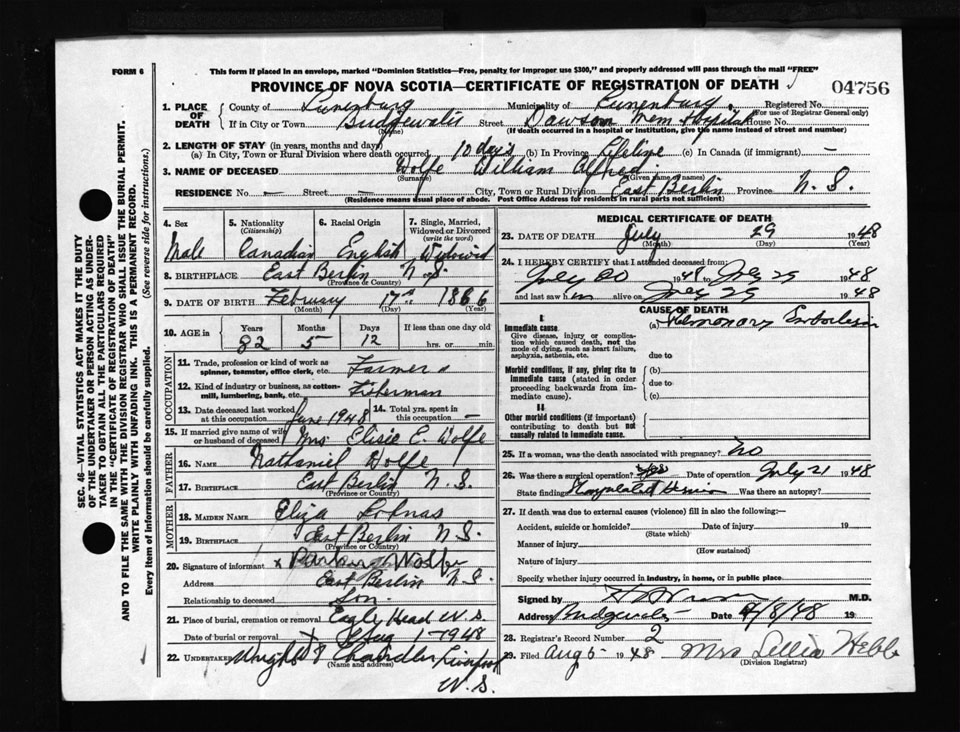 FORM 6
This form if placed in an envelope, marked "Dominion Statistics—Free, penalty for improper use $300," and properly addressed will pass through the mail "FREE"
PROVINCE OF NOVA SCOTIA—CERTIFICATE OF REGISTRATION OF DEATH
04756
1. PLACE OF DEATH
County of Lunenburg Municipality of Lunenburg. Registered No.
(For use of Registrar General only)
If in City or Town Bridgewater Street Dawson Mem Hospital House No.
(Name) (If death occurred in a hospital or institution, give the name instead of street and number)
2. LENGTH OF STAY (in years, months and days)
(a) In City, Town or Rural Division where death occurred 10 days (b) In Province Lifetime (c) In Canada (if immigrant) —
3. NAME OF DECEASED Wolfe William Alfred
(Surname) (Given name or names)
RESIDENCE No. — Street — City, Town or Rural Division East Berlin Province N.S.
(Residence means usual place of abode. Post Office Address for residents in rural parts not sufficient)
4. Sex Male
5. Nationality (Citizenship) Canadian
6. Racial Origin English
7. Single, Married, Widowed or Divorced (write the word) Widowed
8. BIRTHPLACE East Berlin N.S.
(Province or Country)
9. DATE OF BIRTH February 17th 1866
(Month) (Day) (Year)
10. AGE in Years Months Days If less than one day old
82 5 12 hrs. or min.
OCCUPATION
11. Trade, profession or kind of work as spinner, teamster, office clerk, etc. Farmer
12. Kind of industry or business, as cotton-mill, lumbering, bank, etc. Fisherman
13. Date deceased last worked at this occupation June 1948 14. Total yrs. spent in this occupation —
15. If married give name of wife or husband of deceased Mrs Elisie E. Wolfe
FATHER
16. NAME Nathaniel Wolfe
17. BIRTHPLACE East Berlin N.S.
(Province or Country)
MOTHER
18. MAIDEN NAME Eliza
19. BIRTHPLACE East Berlin N.S.
(Province or Country)
20. Signature of informant x Wolfe
Address East Berlin N.S.
Relationship to deceased Son.
21. Place of burial, cremation or removal Eagle Head N.S.
Date of burial or removal Aug 1-1948
22. UNDERTAKER Wright & Chandler Liverpool
(Name and address)
N.S.
MEDICAL CERTIFICATE OF DEATH
23. DATE OF DEATH July 29 1948
(Month) (Day) (Year)
24. I HEREBY CERTIFY that I attended deceased from:
July 20 1948 to July 29 1948
and last saw him alive on July 29 1948
CAUSE OF DEATH
I
Immediate cause.
(a) Pulmonary Embolism
Give disease, injury or complication which caused death, not the mode of dying, such as heart failure, asphyxia, asthenia, etc.
due to
Morbid conditions, if any, giving rise to immediate cause (stated in order proceeding backwards from immediate cause).
(b)
due to
(c)
II
Other morbid conditions (if important) contributing to death but not causally related to immediate cause.
25. If a woman, was the death associated with pregnancy? No
26. Was there a surgical operation? Yes Date of operation July 21 1948
State finding Strangulated Hernia Was there an autopsy?
27. If death was due to external causes (violence) fill in also the following:—
Accident, suicide or homicide? Date of injury 19
(State which)
Manner of injury
(How sustained)
Nature of injury
Specify whether injury occurred in industry, in home, or in public place
Signed by M.D.
Address Bridgewater Date 4/8/48 19
28. Registrar's Record Number 2
29. Filed Aug 5 1948 Mrs Lellia Hebb
(Division Registrar)
SEC. 46—VITAL STATISTICS ACT MAKES IT THE DUTY
OF THE UNDERTAKER OR PERSON ACTING AS UNDER-
TAKER TO OBTAIN ALL THE PARTICULARS REQUIRED
IN THE "CERTIFICATE OF REGISTRATION OF DEATH"
AND TO FILE THE SAME WITH THE DIVISION REGISTRAR WHO SHALL ISSUE THE BURIAL PERMIT.
WRITE PLAINLY WITH UNFADING INK. THIS IS A PERMANENT RECORD.
Every item of information should be carefully supplied. (See reverse side for instructions.)